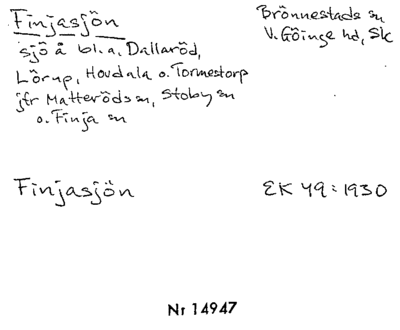 Finjasjön
Brönnestads sn
V. Göinge hd, Sk
sjö å bl.a. Dallaröd,
Lörup, Hovdala o. Tormestorp
jfr Matteröds sn, Stoby sn
o. Finja sn
Finjasjön
EK 49:1930
Nr 14947